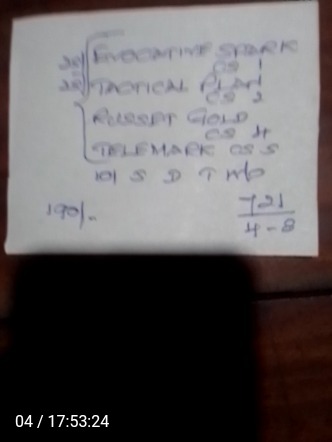 EVOCATIVE SPARK
CS 1
TACTICAL PLAN
CS 2
RUSSET GOLD
CS 4
TELEMARK CS 5
10/ S D T
190/-
721
4-8
04 / 17:53:24